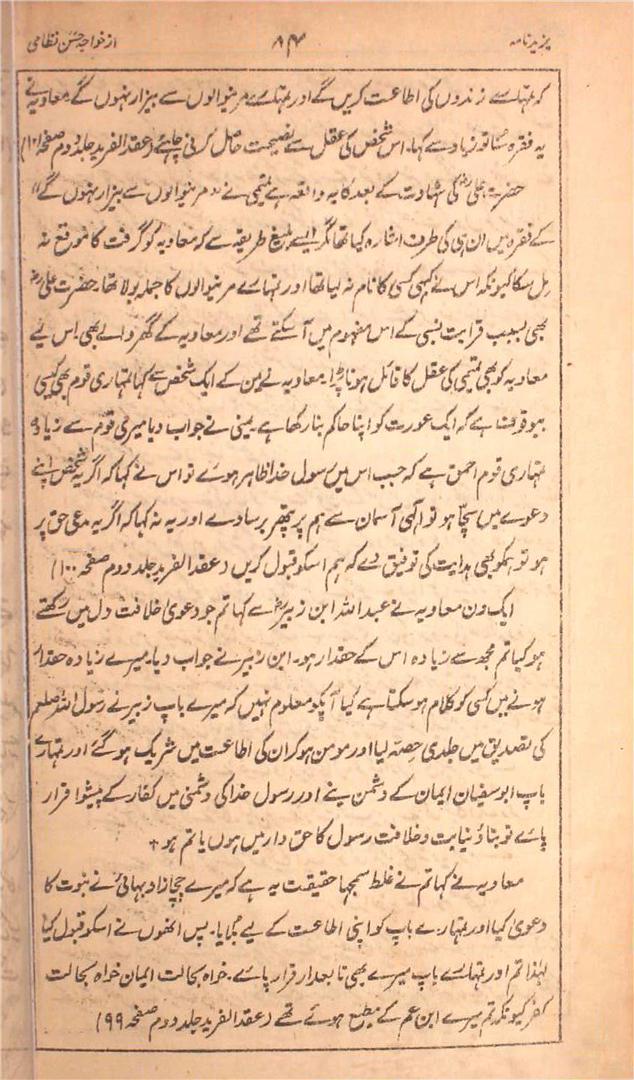 یزید نامہ ۸۴ از خواجہ حسن نظامی
کہ تمہارے زندوں کی اطاعت کریں گے اور تمہارے مرنیوالوں سے بیزار نہوں گے۔ معاویہ نے
یہ فقرہ سنا تو زیاد سے کہا۔ اس شخص کی عقل سے نصیحت حاصل کرنی چاہئے (عقد الفرید جلد دوم صفحہ ۱۰۱)
حضرت علیؓ کی شہادت کے بعد کا یہ واقعہ ہے تمیمی نے "مرنیوالوں سے بیزار نہوں گے"
کے فقرہ میں ان ہی کی طرف اشارہ کیا تھا مگر ایسے بلیغ طریقہ سے کہ معاویہ کو گرفت کا موقع نہ
مل سکا کیونکہ اس نے کہیں کسی کا نام نہ لیا تھا اور تمہارے مرنیوالوں کا جملہ بولا تھا، حضرت علیؓ
بھی بسبب قرابت نسبی کے اس مفہوم میں آ سکتے تھے اور معاویہ کے گھر والے بھی۔ اس لیے
معاویہ کو بھی تمیمی کی عقل کا قائل ہونا پڑا۔ معاویہ نے یمن کے ایک شخص سے کہا تمہاری قوم بھی کیسی
بیوقوف ہے کہ ایک عورت کو اپنا حاکم بنا رکھا ہے۔ یمنی نے جواب دیا میری قوم سے زیادہ
تمہاری قوم احمق ہے کہ جب اس میں رسول خدا ظاہر ہوئے تو اس نے کہا کہ اگر یہ شخص اپنے
دعوے میں سچا ہو تو الٰہی آسمان سے ہم پر پتھر برسادے اور یہ نہ کہا کہ اگر یہ مدعی حق پر
ہو تو ہمکو بھی ہدایت کی توفیق دے کہ ہم اسکو قبول کریں (عقد الفرید جلد دوم صفحہ ۱۰۰)
ایک دن معاویہ نے عبد اللہ ابن زبیرؓ سے کہا تم جو دعویٰ خلافت دل میں رکھتے
ہو کیا تم مجھ سے زیادہ اس کے حقدار ہو۔ ابن زبیر نے جواب دیا۔ میرے زیادہ حقدار
ہونے میں کسی کو کلام ہو سکتا ہے کیا آپکو معلوم نہیں کہ میرے باپ زبیر نے رسول اللہ صلعم
کی تصدیق میں جلدی حصہ لیا اور مومن ہو کر ان کی اطاعت میں شریک ہو گئے اور تمہارے
باپ ابوسفیان ایمان کے دشمن بنے اور رسول خدا کی دشمنی میں کفار کے پیشوا قرار
پائے تو بتاؤ نیابت و خلافت رسول کا حق دار میں ہوں یا تم ہو +
معاویہ نے کہا تم نے غلط سمجہا حقیقت یہ ہے کہ میرے چچا زاد بہائی نے نبوت کا
دعویٰ کیا اور تمہارے باپ کو اپنی اطاعت کے لیے بلایا۔ پس انھوں نے اسکو قبول کیا
لہٰذا تم اور تمہارے باپ میرے بھی تابعدار قرار پائے۔ خواہ بحالت ایمان خواہ بحالت
کفر کیونکہ تم میرے ابن عم کے مطیع ہوئے تھے (عقد الفرید جلد دوم صفحہ ۹۹)